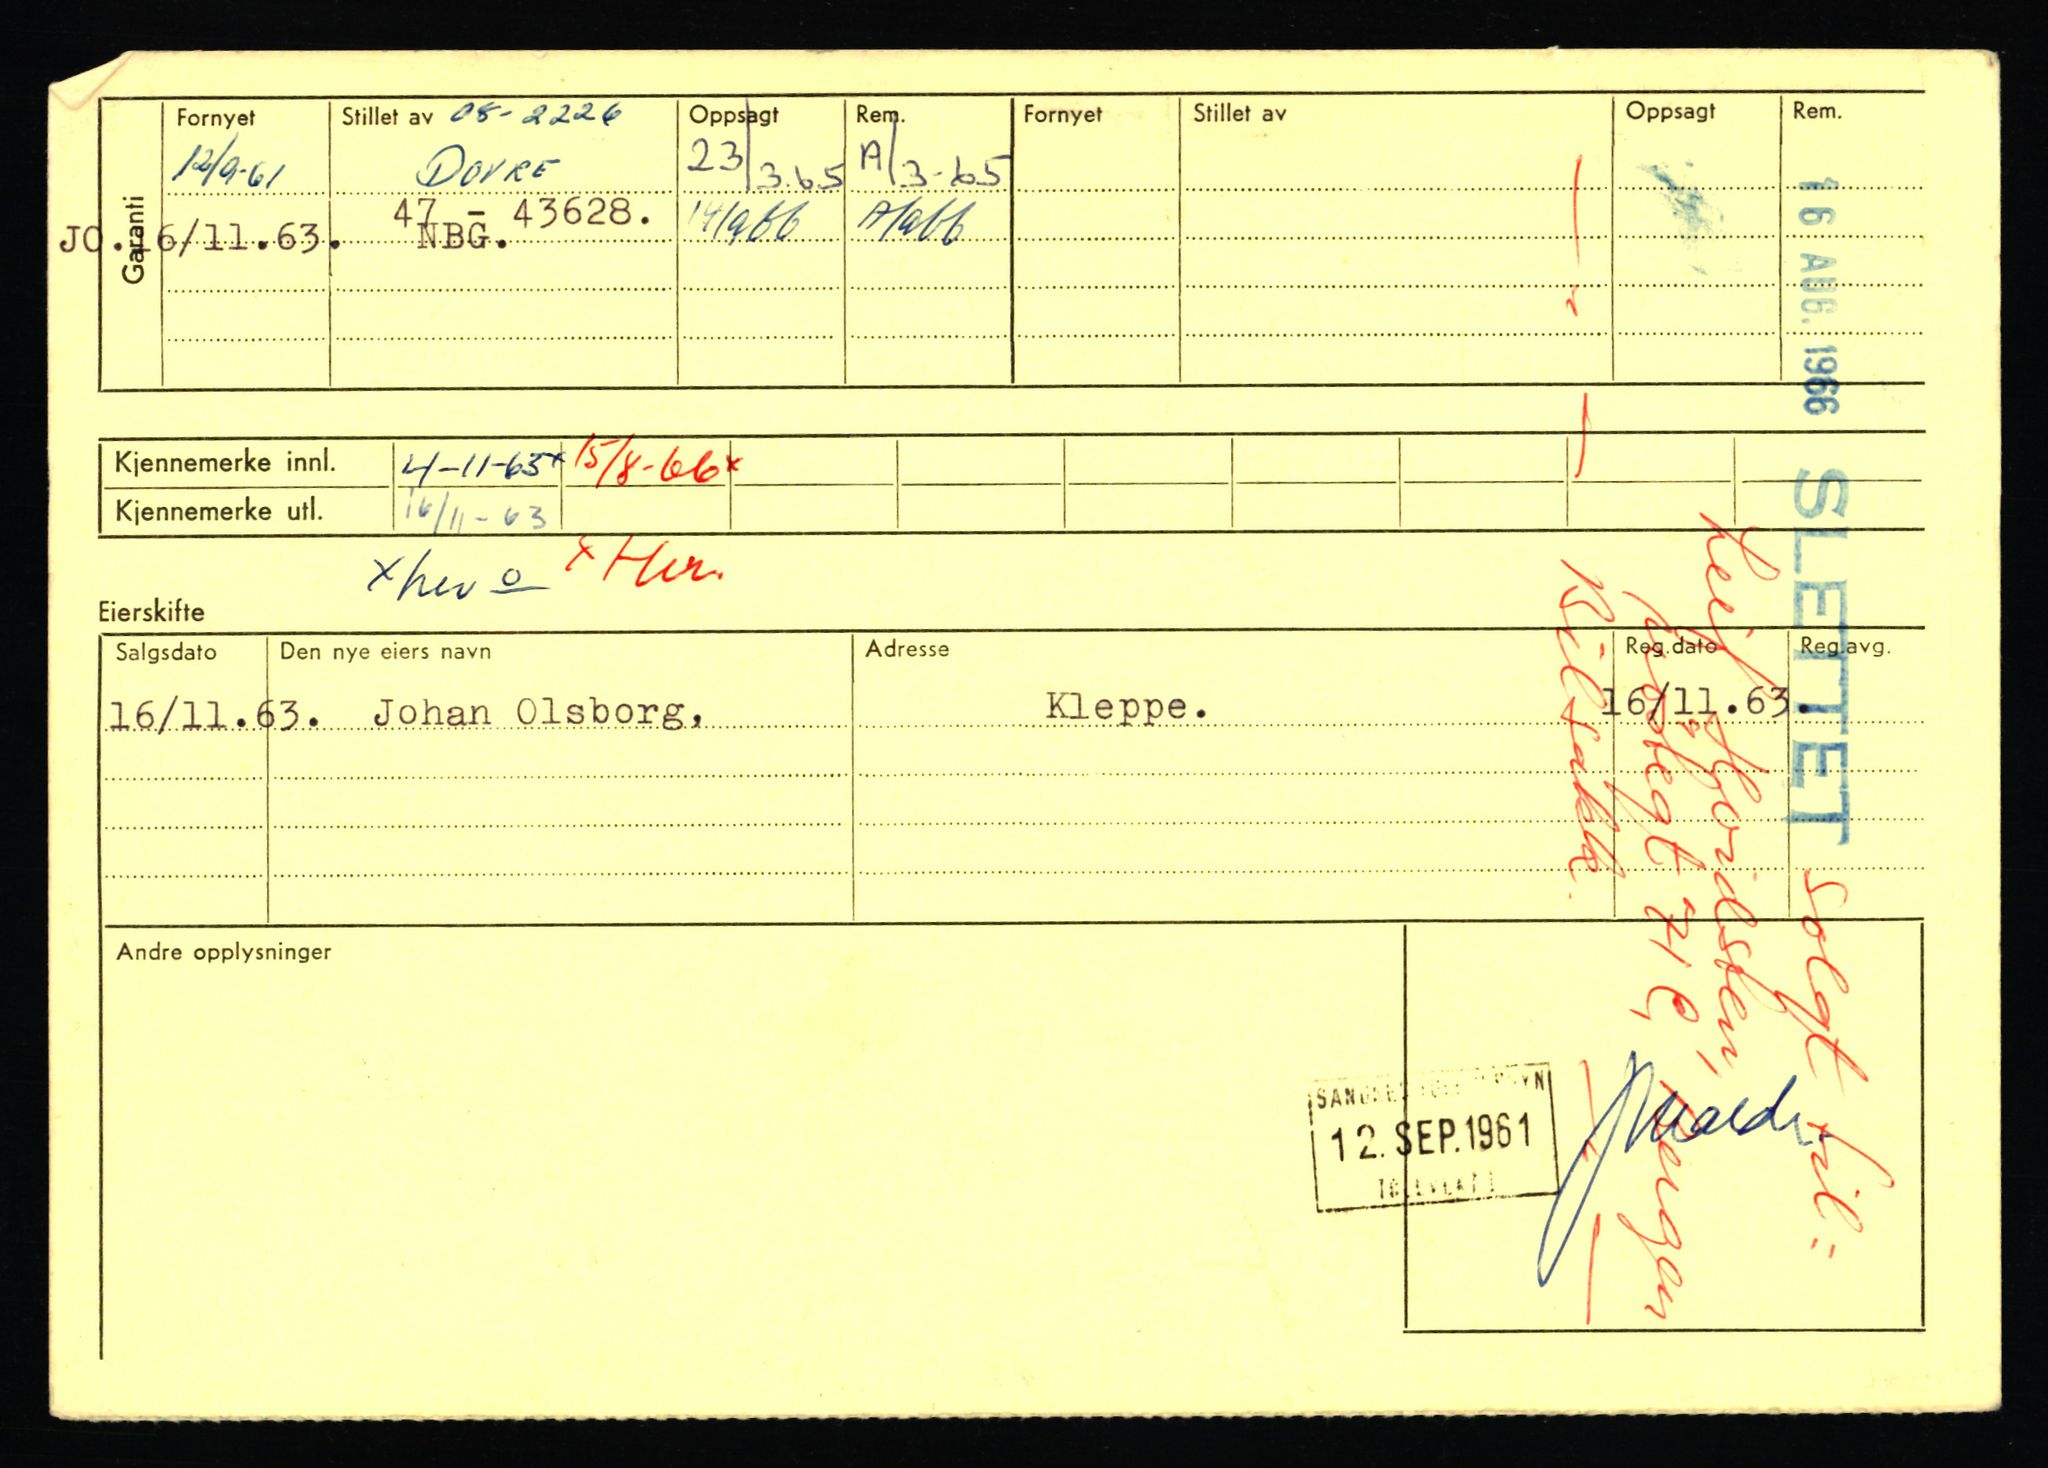 Fornyet Stillet av 08-2226 Oppsagt Rem. Fornyet Stillet av Oppsagt Rem.
12/9-61 DOVRE 23/3.65 A/3-65
47 - 43628. 14/966 A/966
JO. 16/11.63. NBG.
Garanti
16 AUG. 1966
SLETTET
Kjennemerke innl. 4-11-63x 15/8-66x
Kjennemerke utl. 16/11-63
x her x Her.
Eierskifte
Salgsdato Den nye eiers navn Adresse Reg.dato Reg.avg.
16/11.63. Johan Olsborg, Kleppe. 16/11.63.
Andre opplysninger
solgt til:
Leif
71 C, Bergen
12. SEP. 1961